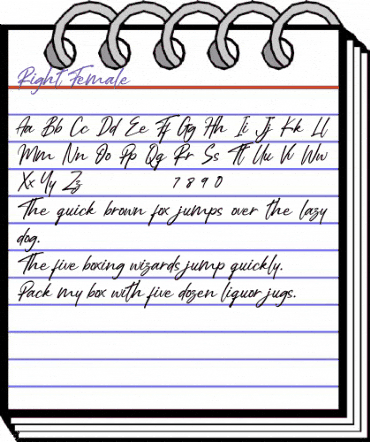 Right Female
Aa Bb Cc Dd Ee Ff Gg Hh Ii Jj Kk Ll
Mm Nn Oo Pp Qq Rr Ss Tt Uu Vv Ww
Xx Yy Zz 7 8 9 0
The quick brown fox jumps over the lazy
dog.
The five boxing wizards jump quickly.
Pack my box with five dozen liquor jugs.